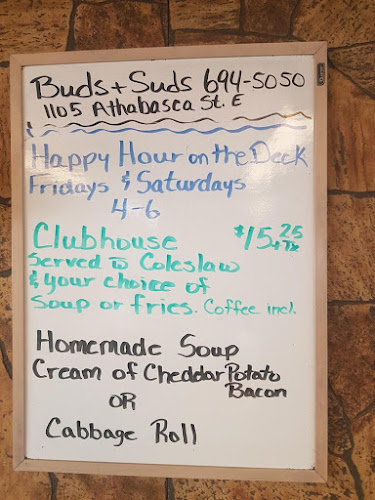 Buds + Suds 694-5050
1105 Athabasca St. E
Happy Hour on the Deck
Fridays & Saturdays
4-6
Clubhouse $15.25 + Tx
Served w Coleslaw
& your choice of
Soup or fries. Coffee incl.
Homemade Soup
Cream of Cheddar Potato
Bacon
OR
Cabbage Roll